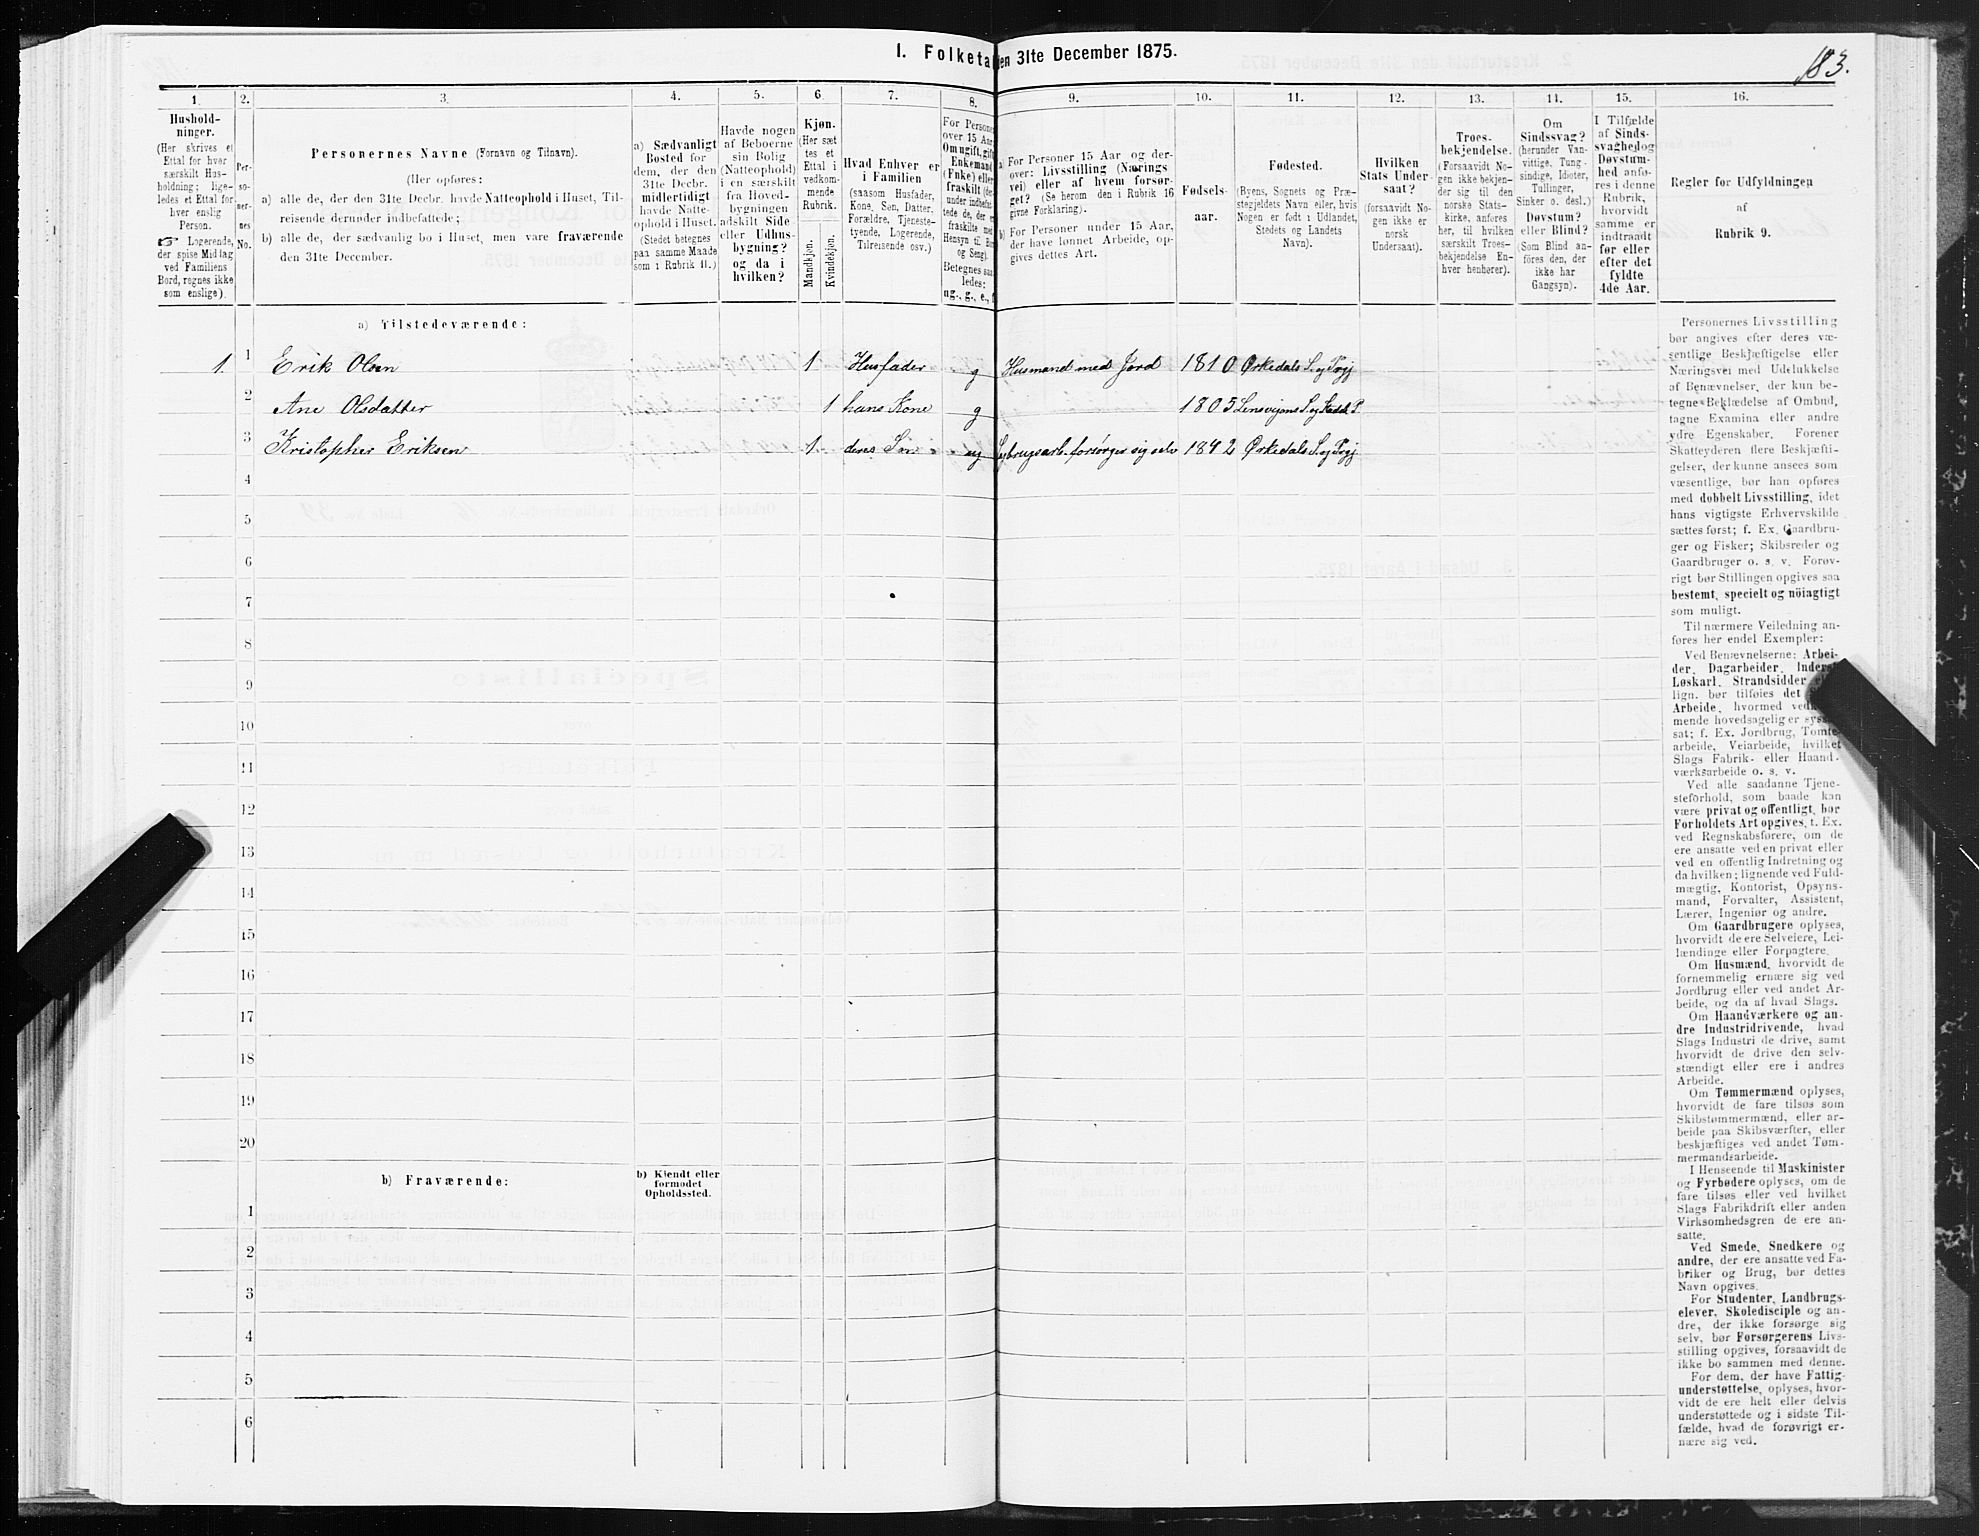 183.
I. Folketa
den 31te December 1875.
1.
2.
3.
4.
5.
6
7.
8.
9.
10.
11.
12.
13.
14.
15.
16.
Hushold-
ninger.
(Her skrives et
Ettal for hver
særskilt Hus-
holdning; lige-
ledes et Ettal for
hver enslig
Person.
☞ Logerende,
der spise Middag
ved Familiens
Bord, regnes ikke
som enslige).
Per-
so-
ner-
nes
No.
Personernes Navne (Fornavn og Tilnavn).
(Her opføres:
a) alle de, der den 31te Decbr. havde Natteophold i Huset, Til-
reisende derunder indbefattede;
b) alle de, der sædvanlig bo i Huset, men vare fraværende
den 31te December.
a) Sædvanligt
Bosted for
dem, der den
31te Decbr.
midlertidigt
havde Natte-
ophold i Huset.
(Stedet betegnes
paa samme Maade
som i Rubrik 11.)
Havde nogen
af Beboerne
sin Bolig
(Natteophold)
i en særskilt
fra Hoved-
bygningen
adskilt Side
eller Udhus-
bygning?
og da i
hvilken?
Kjøn.
(Her sæt
tes et
Ettal i
vedkom-
mende
Rubrik.
Mandkjøn.
Kvindekjøn.
Hvad Enhver er
i Familien
(saasom Husfader,
Kone, Søn, Datter,
Forældre, Tjeneste-
tyende, Logerende,
Tilreisende osv.)
For Persone
over 15 Aar
Om ugift, gift
Enkemand
(Enke) eller
fraskilt (der
under indbefat
tede de, der e
fraskilte med
Hensyn til Bor
og Seng).
Betegnes saa
ledes:
ug., g., e., f
a) For Personer 15 Aar og der-
over: Livsstilling (Nærings
vei) eller af hvem forsør-
get? (Se herom den i Rubrik 16
givne Forklaring).
b) For Personer under 15 Aar,
der have lønnet Arbeide, op-
gives dettes Art.
Fødsels-
aar.
Fødested.
(Byens, Sognets og Præ-
stegjeldets Navn eller, hvis
Nogen er født i Udlandet,
Stedets og Landets
Navn).
Hvilken
Stats Under-
saat?
(forsaavidt No-
gen ikke er
norsk
Undersaat).
Troes-
bekjendelse.
(Forsaavidt No-
gen ikke bekjen-
der sig til den
norske Stats-
kirke, anføres
her, til hvilken
særskilt Troes-
bekjendelse En-
hver henhører).
Om
Sindssvag?
(herunder Van-
vittige, Tung-
sindige, Idioter,
Tullinger,
Sinker o. desl.)
Døvstum?
eller Blind?
(Som Blind an-
føres den, der
ikke har
Gangsyn).
I Tilfælde
af Sinds-
svaghed og
Døvstum-
hed anfø-
res i denne
Rubrik,
hvorvidt
samme er
indtraadt
før eller
efter det
fyldte
4de Aar.
Regler for Udfyldningen
af
Rubrik 9.
a) Tilstedeværende:
1. 1 Erik Olsen 1 Husfader g Husmand med Jord 1810 Ørkedals S. og Prgj
2 Ane Olsdatter 1 hans Kone g 1805 Lensvigens S. og P.
3 Kristopher Eriksen 1 deres Søn ug forsørger sig selv 1842 Ørkedals S. og Prgj
4
5
6
7
8
9
10
11
12
13
14
15
16
17
18
19
20
b) Fraværende:
b) Kjendt eller
formodet
Opholdssted.
1
2
3
4
5
6
Personernes Livsstilling
bør angives efter deres væ-
sentlige Beskjæftigelse eller
Næringsvei med Udelukkelse
af Benævnelser, der kun be-
tegne Beklædelse af Ombud,
tagne Examina eller andre
ydre Egenskaber. Forener
Skatteyderen flere Beskjæfti-
gelser, der kunne ansees som
væsentlige, bør han opføres
med dobbelt Livsstilling, idet
hans vigtigste Erhvervskilde
sættes først; f. Ex. Gaardbru-
ger og Fisker; Skibsreder og
Gaardbruger o. s. v. Forøv-
rigt bør Stillingen opgives saa
bestemt, specielt og nöiagtigt
som muligt.
Til nærmere Veiledning an-
føres her endel Exempler:
Ved Benævnelserne: Arbei-
der, Dagarbeider, Inderst
Løskarl, Strandsidder
lign. bør tilføies det
Arbeide, hvormed ved
mende hovedsagelig er syssel
sat; f. Ex. Jordbrug, Tomte-
arbeide, Veiarbeide, hvilket
Slags Fabrik- eller Haand-
værksarbeide o. s. v.
Ved alle saadanne Tjene-
steforhold, som baade kan
være privat og offentligt, bør
Forholdets Art opgives, t. Ex.
ved Regnskabsførere, om de
ere ansatte ved en privat eller
ved en offentlig Indretning og
da hvilken; lignende ved Fuld-
mægtig, Kontorist, Opsyns-
mand, Forvalter, Assistent,
Lærer, Ingeniør og andre.
Om Gaardbrugere oplyses,
hvorvidt de ere Selveiere, Lei-
lændinge eller Forpagtere.
Om Husmænd, hvorvidt de
fornemmelig ernære sig ved
Jordbrug eller ved andet Ar-
beide, og da af hvad Slags.
Om Haandværkere og an-
dre Industridrivende, hvad
Slags Industri de drive, samt
hvorvidt de drive den selv-
stændigt eller ere i andres
Arbeide.
Om Tømmermænd oplyses,
hvorvidt de fare tilsøs som
Skibstømmermænd, eller ar-
beide paa Skibsværfter, eller
beskjæftiges ved andet Tøm-
mermandsarbeide.
I Henseende til Maskinister
og Fyrbødere oplyses, om de
fare tilsøs eller ved hvilket
Slags Fabrikdrift eller anden
Virksomhedsgren de ere an-
satte.
Ved Smede, Snedkere og
andre, der ere ansatte ved Fa-
briker og Brug, bør dettes
Navn opgives.
For Studenter, Landbrugs-
elever, Skoledisciple og an-
dre, der ikke forsørge sig
selv, bør Forsørgerens Livs-
stilling opgives, forsaavidt de
ikke bo sammen med denne.
For dem, der have Fattig-
understøttelse, oplyses, hvor-
vidt de ere helt eller delvis
understøttede og i sidste Til-
fælde, hvad de forøvrigt er-
nære sig ved.